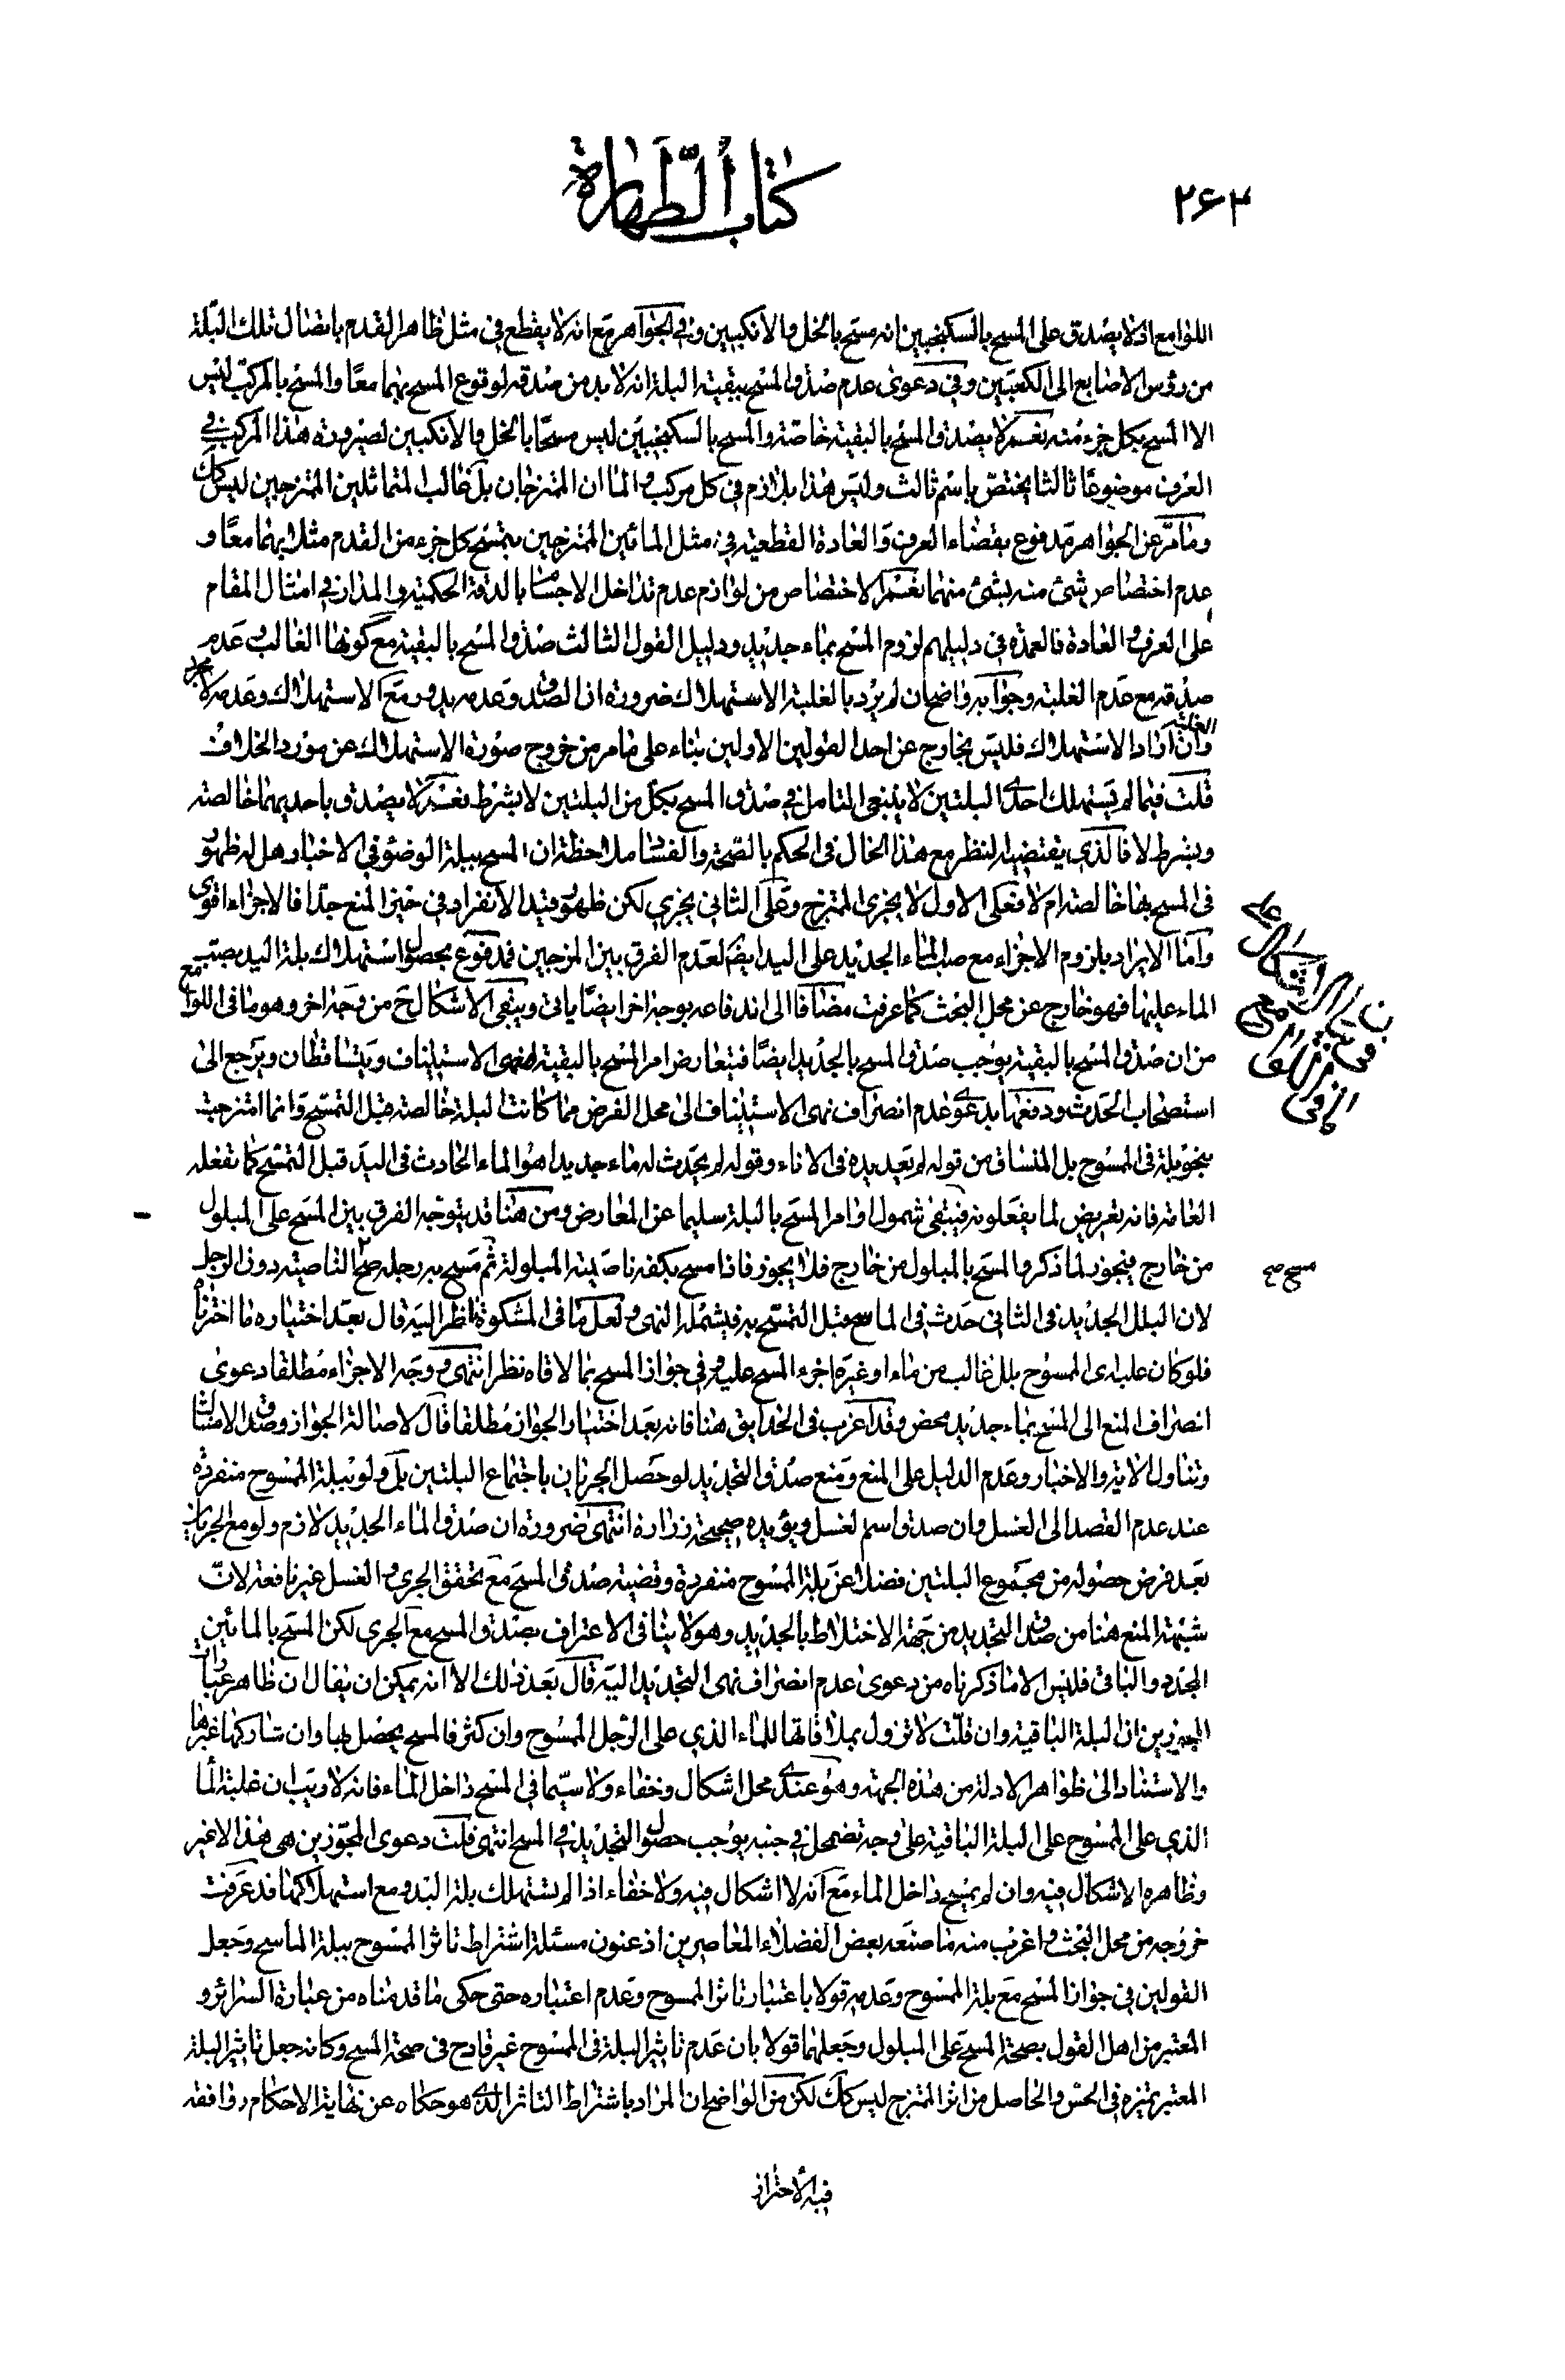 ۲۶۲
كتاب الطهارة
اللوامع اذ لا يصدق على المسح بالسكنجبين انه مسح بالخل والانكبين وفي الجواهر مع انه لا يقطع في مثل ظاهر القدم باتصال تلك البلة
من رؤس الاصابع الى الكعبين وفي دعوى عدم صدق المسح ببقية البلة انه لا بد من صدقه لوقوع المسح بهما معا والمسح بالمركب ليس
الا المسح بكل جزء منه نعم لا يصدق المسح بالبقية خاصة والمسح بالسكنجبين ليس مسحا بالخل والانكبين لصيرورة هذا المركب في
العرف موضوعا ثالثا يختص باسم ثالث وليس هذا بلازم في كل مركب والماءان الممتزجان بل غالب المتماثلين الممتزجين ليس كك
وما مر عن الجواهر مدفوع بقضاء العرف والعادة القطعية في مثل المائين الممتزجين بتمسح كل جزء من القدم مثلا بهما معا و
عدم اختصاص شئ منه بشئ منهما نعم الاختصاص من لوازم عدم تداخل الاجسام بالدقة الحكمية والمدار في امثال المقام
على العرف والعادة فالعمدة في دليلهم لزوم المسح بماء جديد ودليل القول الثالث صدق المسح بالبقية مع كونها الغالب وعدم
صدقه مع عدم الغلبة وجوابه واضح ان لم يرد بالغلبة الاستهلاك ضرورة ان الصدق وعدمه يدور مع الاستهلاك وعدمه لا مجرد الغلبة
وان اراد الاستهلاك فليس بخارج عن احد القولين الاولين بناء على ما مر من خروج صورة الاستهلاك عن مورد الخلاف
قلت فيما لم يستهلك احدى البلتين لا ينبغي التامل في صدق المسح بكل من البلتين لا بشرط نعم لا يصدق باحديهما خالصة
وبشرط لا فالذي يقتضيه النظر مع هذا الحال في الحكم بالصحة والفساد ملاحظة ان المسح ببلة الوضوء في الاخبار هل له ظهور
في المسح بها خالصة ام لا فعلى الاول لا يجزى الممتزج وعلى الثاني يجزى لكن ظهور قيد الانفراد في حيز المنع جدا فالاجزاء اقوى
واما الايراد بلزوم الاجزاء مع صب الماء الجديد على اليد ايضا لعدم الفرق بين المزجين فمدفوع بحصول استهلاك بلة اليد بصب
الماء عليها فهو خارج عن محل البحث كما عرفت مضافا الى اندفاعه بوجه اخر ايضا ياتى ويبقى الاشكال ح من وجه اخر وهو ما في اللوامع
من ان صدق المسح بالبقية يوجب صدق المسح بالجديد ايضا فيتعارض امر المسح بالبقية ونهى الاستيناف ويتساقطان ويرجع الى
استصحاب الحدث ودفعها بدعوى عدم انصراف نهى الاستيناف الى محل الفرض مما كانت البلة خالصة قبل التمسح وانما امتزجت
بنحو بلة في الممسوح بل المنساق من قوله لم يعد يده في الاناء وقوله لم يحدث له ماء جديدا هو الماء الحادث في اليد قبل التمسح كما تفعله
العامة فانه تعريض لما يفعلونه فيبقى شمول اوامر المسح بالبلة سليما عن المعارض ومن هنا قد يتوجه الفرق بين المسح على المبلول
من خارج فيجوز لما ذكر والمسح بالمبلول من خارج فلا يجوز فاذا مسح بكفه ناصيته المبلولة ثم مسح به رجله صح الناصية دون الرجل
لان البلل الجديد في الثاني حدث في الماسح قبل التمسح به فيشمله النهى ولعل ما في المشكوة ناظر اليه قال بعد اختياره ما اخترناه
فلو كان على الممسوح بلل غالب من ماء او غيره اجزء المسح عليه وفي جواز المسح بما لاقاه نظر انتهى ووجه الاجزاء مطلقا دعوى
انصراف المنع الى المسح بماء جديد محض وقد اغرب في الحدايق هنا فانه بعد اختيار الجواز مطلقا قال لاصالة الجواز وصدق الامتثال
وتناول الاية والاخبار وعدم الدليل على المنع ومنع صدق التجديد لو حصل الجريان باجتماع البلتين بل ولو ببلة الممسوح منفردة
عند عدم القصد الى الغسل وان صدق اسم الغسل ويؤيده صحيحة زرارة انتهى ضرورة ان صدق الماء الجديد لازم ولو مع الجريان
بعد فرض حصوله من مجموع البلتين فضلا عن بلة الممسوح منفردة وقضية صدق المسح مع تحقق الجرى والغسل غير نافعة لان
شبهة المنع هنا من صدق التجديد من جهة الاختلاط بالجديد وهو لا ينافى الاعتراف بصدق المسح مع الجرى لكن المسح بالمائين
المجدد والباقى فليس الا ما ذكرناه من دعوى عدم انصراف نهى التجديد اليه قال بعد ذلك الا انه يمكن ان يقال ان ظاهر عبارات
المجوزين ان البلة الباقية وان قلت لا تزول بملاقاتها للماء الذي على الرجل الممسوح وان كثر فالمسح يحصل بها وان شاركها غيرها
والاستناد الى ظواهر الادلة من هذه الجهة وهو عندى محل اشكال وخفاء ولا سيما في المسح داخل الماء فانه لا ريب ان غلبة الماء
الذي على الممسوح على البلة الباقية على وجه تضمحل في جنبه يوجب حصول التجديد في المسح انتهى قلت دعوى المجوزين هى هذا لا غير
وظاهره الاشكال فيه وان لم يمسح داخل الماء مع انه لا اشكال فيه ولا خفاء اذا لم يستهلك بلة اليد ومع استهلاكها قد عرفت
خروجه من محل البحث واغرب منه ما صنعه بعض الفضلاء المعاصرين اذ عنون مسئلة اشتراط تاثر الممسوح ببلة الماسح وجعل
القولين في جواز المسح مع بلة الممسوح وعدمه قولا باعتبار تاثر الممسوح وعدم اعتباره حتى حكى ما قدمناه من عبارة السرائر و
المعتبر من اهل القول بصحة المسح على المبلول وجعلهما قولا بان عدم تاثير البلة في الممسوح غير قادح في صحة المسح وكانه جعل تاثير البلة
المعتبر تميزه في الحس والحاصل من اثر الممتزج ليس كك لكن من الواضح ان المراد باشتراط التاثر الذى هو حكاه عن نهاية الاحكام وفاقه
مسح صح
فيه الاحتراز